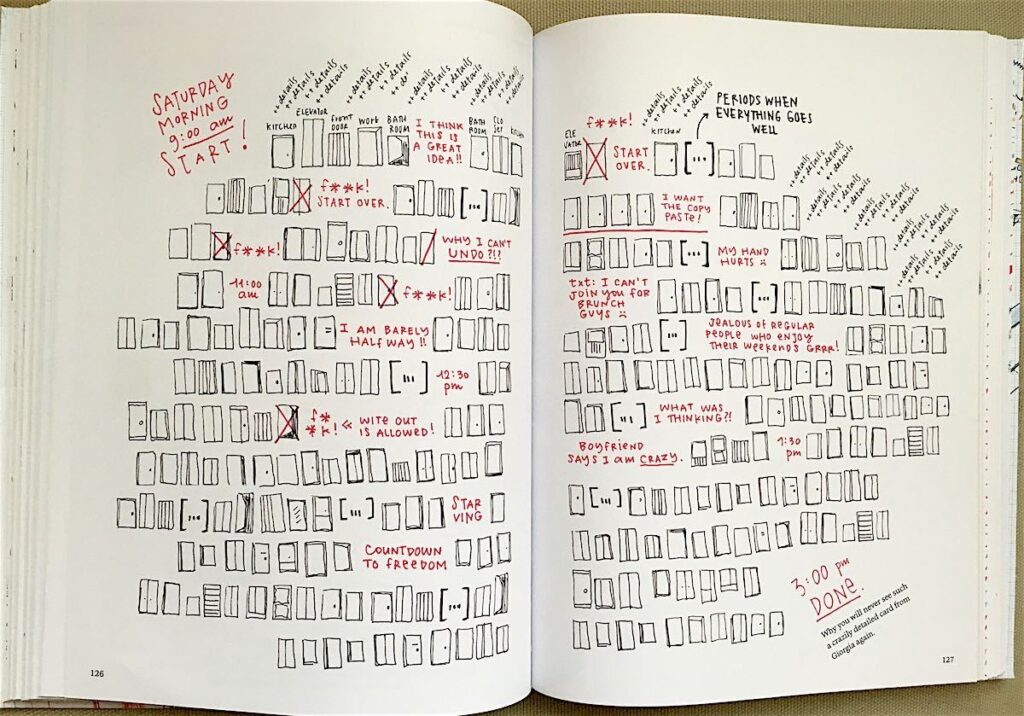 SATURDAY
MORNING
9:00 am
START!
++details
++details
++details
++details
++details
++details
++details
++details
++details
++details
++details
++details
KITCHEN
ELEVATOR
front
DOOR
WORK
BATH
ROOM
I THINK
THIS IS
A GREAT
IDEA!!
BATH
ROOM
CLO
SET
KITCHEN
f**k!
START OVER.
[...]
f**k!
WHY I CAN'T
UNDO?!?
11:00
am
f**k!
I AM BARELY
HALF WAY!!
[...]
12:30
pm
f*
*k! << WITE OUT
IS ALLOWED!
[...]
[...]
STAR
VING
COUNTDOWN
TO FREEDOM
[...]
126
++details
++details
++details
++details
++details
++details
++details
++details
PERIODS WHEN
EVERYTHING GOES
WELL
ELE
VATOR
f**k!
START
OVER.
KITCHEN
[...]
++details
++details
++details
++details
++details
++details
++details
++details
I WANT
THE COPY
PASTE!
++details
++details
++details
++details
++details
++details
++details
++details
[...]
MY HAND
HURTS :(
txt: I CAN'T
JOIN YOU FOR
BRUNCH
GUYS :(
[...]
[...]
JEALOUS OF REGULAR
PEOPLE WHO ENJOY
THEIR WEEKENDS GRRR!
[...]
WHAT WAS
I THINKING?!
BOYFRIEND
SAYS I AM CRAZY.
1:30
pm
[...]
3:00 pm
DONE.
Why you will never see such
a crazily detailed card from
Giorgia again.
127